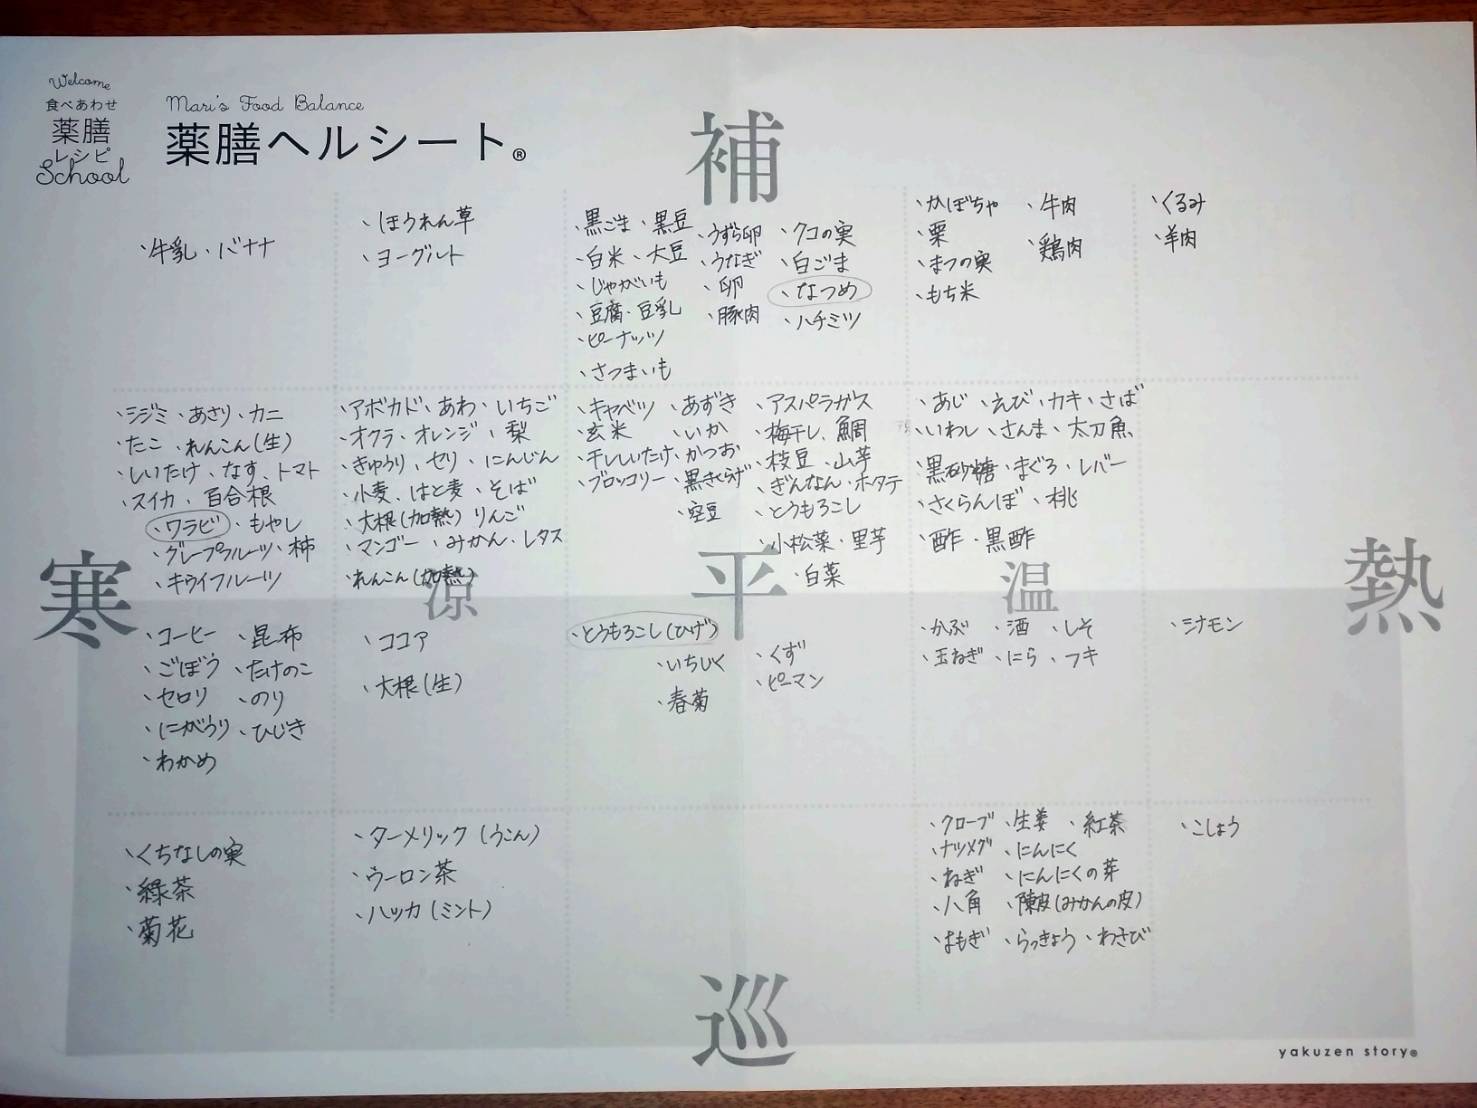 Welcome
食べあわせ
薬膳
レシピ
School
Mari's Food Balance
薬膳ヘルシート®
補
、牛乳、バナナ
、ほうれん草
、ヨーグルト
、黒ごま、黒豆
、白米、大豆
、じゃがいも
、豆腐、豆乳
、ピーナッツ
、さつまいも
、うずら卵
、うなぎ
、卵
、豚肉
、クコの実
、白ごま
、なつめ
、ハチミツ
、かぼちゃ
、栗
、まつの実
、もち米
、牛肉
、鶏肉
、くるみ
、羊肉
、シジミ、あさり、カニ
、たこ、れんこん(生)
、しいたけ、なす、トマト
、スイカ、百合根
、ワラビ、もやし
、グレープフルーツ、柿
、キウイフルーツ
、アボカド、あわ、いちご
、オクラ、オレンジ、梨
、きゅうり、セリ、にんじん
、小麦、はと麦、そば
、大根(加熱)りんご
、マンゴー、みかん、レタス
、れんこん(加熱)
、キャベツ、あずき
、玄米、いか
、干ししいたけ、かつお
、ブロッコリー、黒きくらげ
、空豆
、アスパラガス
、梅干し、鯛
、枝豆、山芋
、ぎんなん、ホタテ
、とうもろこし
、小松菜、里芋
、白菜
、あじ、えび、カキ、さば
、いわし、さんま、太刀魚
、黒砂糖、まぐろ、レバー
、さくらんぼ、桃
、酢、黒酢
寒
涼
平
温
熱
、コーヒー、昆布
、ごぼう、たけのこ
、セロリ、のり
、にがうり、ひじき
、わかめ
、ココア
、大根(生)
、とうもろこし(ひげ)
、いちじく
、春菊
、くず
、ピーマン
、かぶ、酒、しそ
、玉ねぎ、にら、フキ
、シナモン
、くちなしの実
、緑茶
、菊花
、ターメリック(うこん)
、ウーロン茶
、ハッカ(ミント)
、クローブ、生姜、紅茶
、ナツメグ、にんにく
、ねぎ、にんにくの芽
、八角、陳皮(みかんの皮)
、はもぎ、らっきょう、わさび
、こしょう
巡
yakuzen story®